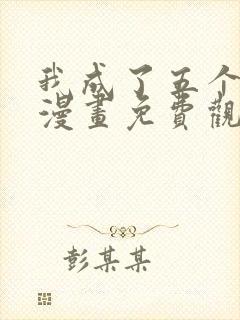 我成了五个
漫畫免費觀
彭某某